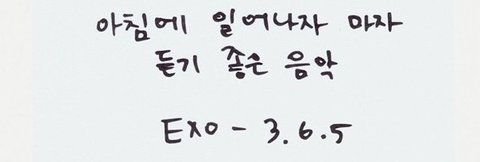 아침에 일어나자 마자
듣기 좋은 음악
EXO - 3.6.5